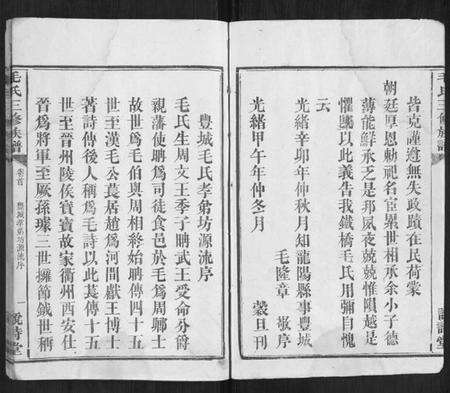 皆克謹遵無失政蹟在民荷蒙
朝廷厚恩勅祀名宦累世相承余小子德
薄能鮮承乏是邪夙夜兢兢惟隕越是
懼驥以此義告我鐵橋毛氏用彌自愧
云
光緒辛卯年仲秋月知龍陽縣事豐城
毛隆章 敬序
光緒甲午年仲冬月 穀旦刊
毛氏三修族譜
卷首
豐城孝弟坊源流序
一
說詩堂
豐城毛氏孝弟坊源流序
毛氏生周文王季子聃武王受命分爵
親藩使聃為司徒食邑於毛為周卿士
故世爲毛伯與周相終始聃傳四十五
世至漢毛公萇居趙爲河間獻王博士
著詩傳後人稱爲毛詩以此萇傳十五
世至晉州陵侯寶寶故家衢州西安仕
晉爲將軍至厥孫璩三世擁節鉞世稱